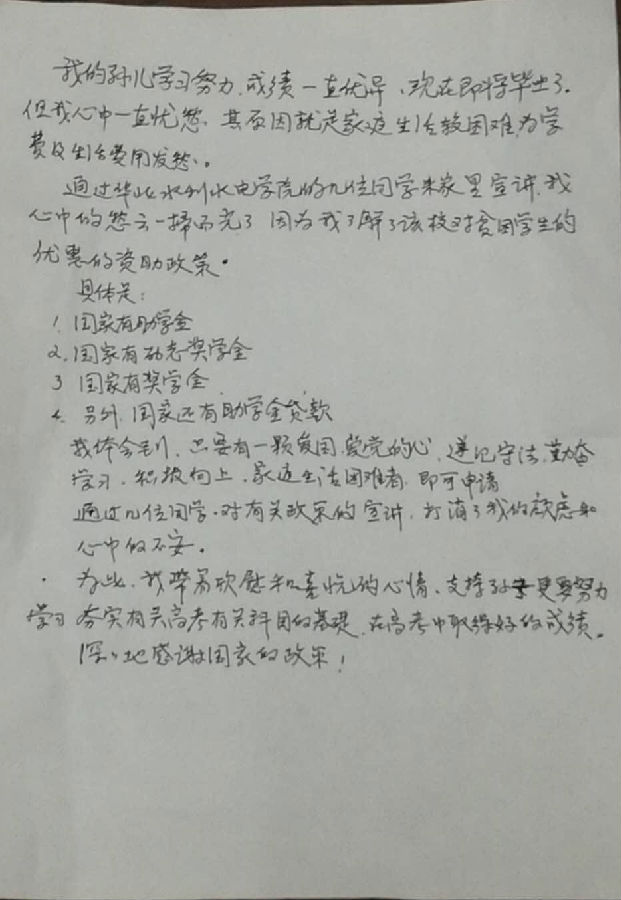 我的孙儿学习努力,成绩一直优异、现在即将毕业了.
但我心中一直忧愁、其原因就是家庭生活较困难为学
费及生活费用发愁、.
通过华北水利水电学院的几位同学来家里宣讲,我
心中的愁云一掃而光了 因为我了解了该校对贫困学生的
优惠的资助政策.
具体是:
1. 国家有助学金
2. 国家有励志奖学金
3 国家有奖学金
4. 另外,国家还有助学金贷款
我体会到,只要有一颗爱国,爱党的心,遵纪守法,勤奋
学习、积极向上、家庭生活困难者,即可申请
通过几位同学、对有关政策的宣讲,打消了我的顾虑和
心中的不安。
为此,我带着欣慰和喜悦的心情、支持孙子更要努力
学习 夯实相关高考有关科目的基礎,在高考中取得好的成绩。
深、地感谢国家的政策!